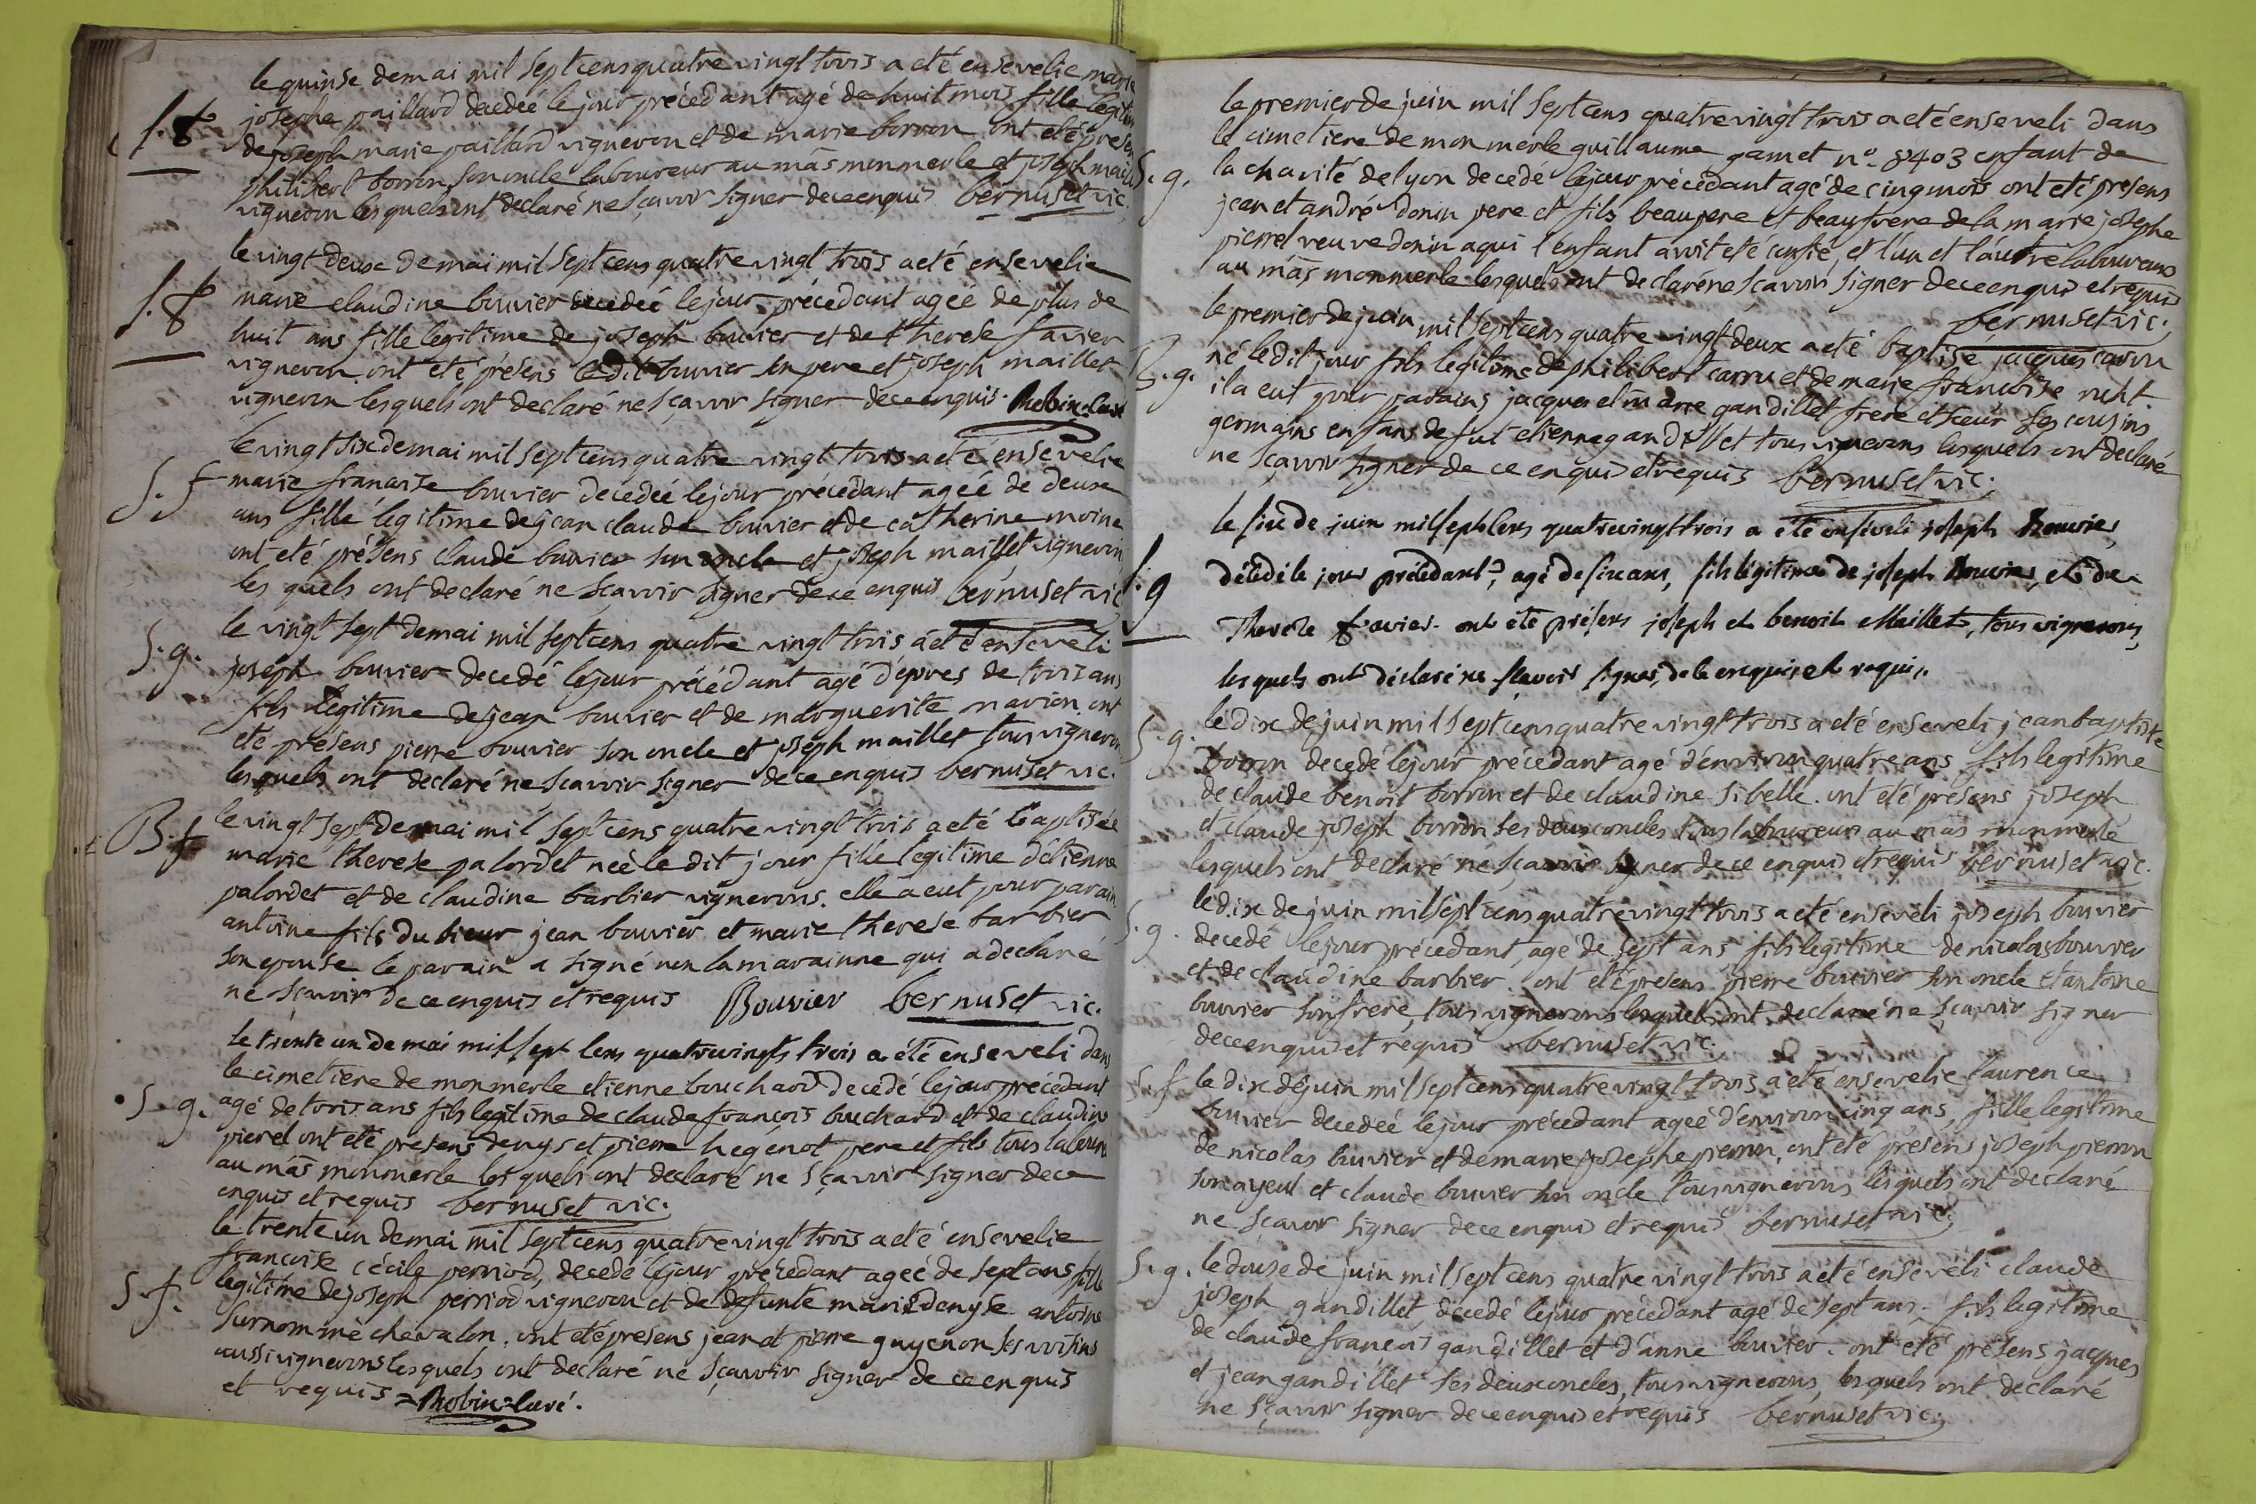 le quinse de mai mil sept cens quatre vingt trois a eté ensevelie marie
S. f josephe paillard decedeé le jour précédant agé de huit mois fille legitime
de joseph marie paillard vigneron et de marie borron ont eté presens
philibert borron son oncle laboureur au mâs monmerle et joseph maillet
vigneron lesquels ont declaré ne sçavoir signer de ce enquis bernuset vic.
le vingt deux de mai mil sept cens quatre vingt trois a eté ensevelie
S. f marie claudine bouvier decedeé le jour précédant ageé de plus de
huit ans fille legitime de joseph bouvier et de therese favier
vigneron. ont eté présens ledit bouvier son pere et joseph maillet
vigneron lesquels ont declaré ne sçavoir signer de ce enquis. Robin curé
le vingt six de mai mil sept cens quatre vingt trois a eté ensevelie
S. f marie francoise bouvier decedeé le jour précédant ageé de deux
ans fille légitime de jean claude bouvier et de catherine moine
ont eté présens claude bouvier son oncle et joseph maillet vigneron
les quels ont declaré ne sçavoir signer de ce enquis bernuset vic
le vingt sept de mai mil sept cens quatre vingt trois a eté enseveli
S. g. joseph bouvier decedé le jour précédant agé d'epres de trois ans
fils légitime de jean bouvier et de marguerite marion. ont
eté présens pierre bouvier son oncle et joseph maillet tous vignerons
lesquels ont declaré ne sçavoir signer de ce enquis bernuset vic.
le vingt sept de mai mil sept cens quatre vingt trois a eté baptisée
B. f marie therese palordet neé le dit jour fille legitime d'etienne
palordet et de claudine barbier vignerons. elle a eut pour parain
antoine fils du sieur jean bouvier et marie therese barbier
son epouse le parain a signé non la marainne qui a declaré
ne sçavoir de ce enquis et requis Bouvier bernuset vic.
le trente un de mai mil sept cens quatrevingts trois a été enseveli dans
le cimetiere de monmerle etienne bouchard decedé le jour précédant
S. g. agé de trois ans fils legitime de claude françois bouchard et de claudine
pierel ont eté presens denys et pierre hegenot pere et fils tous laboureurs
au mâs monmerle lesquels ont declaré ne sçavoir signer de ce
enquis et requis bernuset vic.
le trente un de mai mil sept cens quatre vingt trois a eté ensevelie
francoise cécile perriod, decedé le jour précédant ageé de sept ans fille
S. f. legitime de joseph perriod vigneron et de defunte marie denyse antoine
surnommé chevalon. ont eté presens jean et pierre guyenon ses voisins
aussi vignerons lesquels ont declaré ne sçavoir signer de ce enquis
et requis = Robin = curé.
le premier de juin mil sept cens quatre vingt trois a eté enseveli dans
le cimetiere de monmerle guillaume gamet n°. 8403 enfant de
S. g. la charité de lyon decedé le jour précédant agé de cinq mois ont eté presens
jean et andré donin pere et fils beaupere et beaufrere de la marie josephe
pierrel veuve donin a qui l'enfant avoit eté confié, et l'un et l'autre laboureurs
au mâs monmerle lesquels ont declaré ne sçavoir signer de ce enquis et requis
bernuset vic.
le premier de juin mil sept cens quatre vingt deux a eté baptisé jacques carru
B. g. né le dit jour fils legitime de philibert carru et de marie francoise
il a eut pour parains jacques et marie gandillet frere et sœur ses cousins
germains enfans de fut etienne gandillet tous vignerons lesquels ont declaré
ne sçavoir signer de ce enquis et requis bernuset vic.
le six de juin mil sept cens quatrevingt trois a été enseveli joseph Bouvier,
S. g décédé le jour précédant, agé de six ans, fils légitime de joseph Bouvier, et de
Therese favier. ont été présens joseph et benoit Maillet, tous vignerons,
lesquels ont déclaré ne sçavoir signer, de ce enquis et requis.
le dix de juin mil sept cens quatre vingt trois a eté enseveli jean baptiste
S. g. Borron decedé le jour précédant agé d'environ quatre ans fils legitime
de claude benoit borron et de claudine sibelle. ont eté présens joseph
et claude joseph borron ses deux oncles tous laboureurs au mâs monmerle
lesquels ont declaré ne sçavoir signer de ce enquis et requis bernuset vic.
le dix de juin mil sept cens quatre vingt trois a eté enseveli joseph bouvier
S. g. decedé le jour précédant, agé de sept ans fils legitime de nicolas bouvier
et de claudine barbier. ont eté présens pierre bouvier son oncle et antoine
bouvier son frere, tous vignerons lesquels ont declaré ne sçavoir signer
de ce enquis et requis bernuset vic.
S. f. le dix de juin mil sept cens quatre vingt trois a eté ensevelie laurence
bouvier decedeé le jour précédant ageé d'environ cinq ans, fille legitime
de nicolas bouvier et de marie josephe pierron, ont eté présens joseph pierron
son ayeul et claude bouvier son oncle tous vignerons lesquels ont declaré
ne sçavoir signer de ce enquis et requis bernuset vic.
S. g. le douse de juin mil sept cens quatre vingt trois a eté enseveli claude
joseph gandillet, decedé le jour précédant agé de sept ans. fils legitime
de claude francois gandillet et d'anne bouvier. ont eté présens jacques
et jean gandillet ses deux oncles, tous vignerons, lesquels ont declaré
ne sçavoir signer de ce enquis et requis bernuset vic.